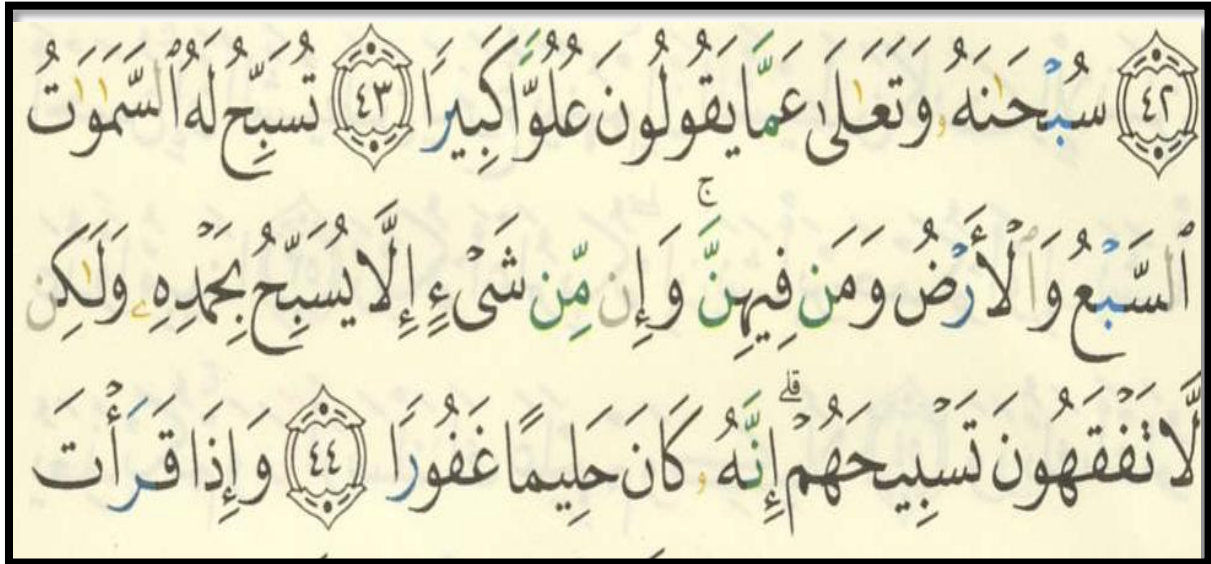 ٤٢ سُبْحَٰنَهُۥ وَتَعَٰلَىٰ عَمَّا يَقُولُونَ عُلُوًّا كَبِيرًا ٤٣ تُسَبِّحُ لَهُ ٱلسَّمَٰوَٰتُ
ٱلسَّبْعُ وَٱلْأَرْضُ وَمَن فِيهِنَّ ۚ وَإِن مِّن شَىْءٍ إِلَّا يُسَبِّحُ بِحَمْدِهِۦ وَلَٰكِن
لَّا تَفْقَهُونَ تَسْبِيحَهُمْ ۗ إِنَّهُۥ كَانَ حَلِيمًا غَفُورًا ٤٤ وَإِذَا قَرَأْتَ